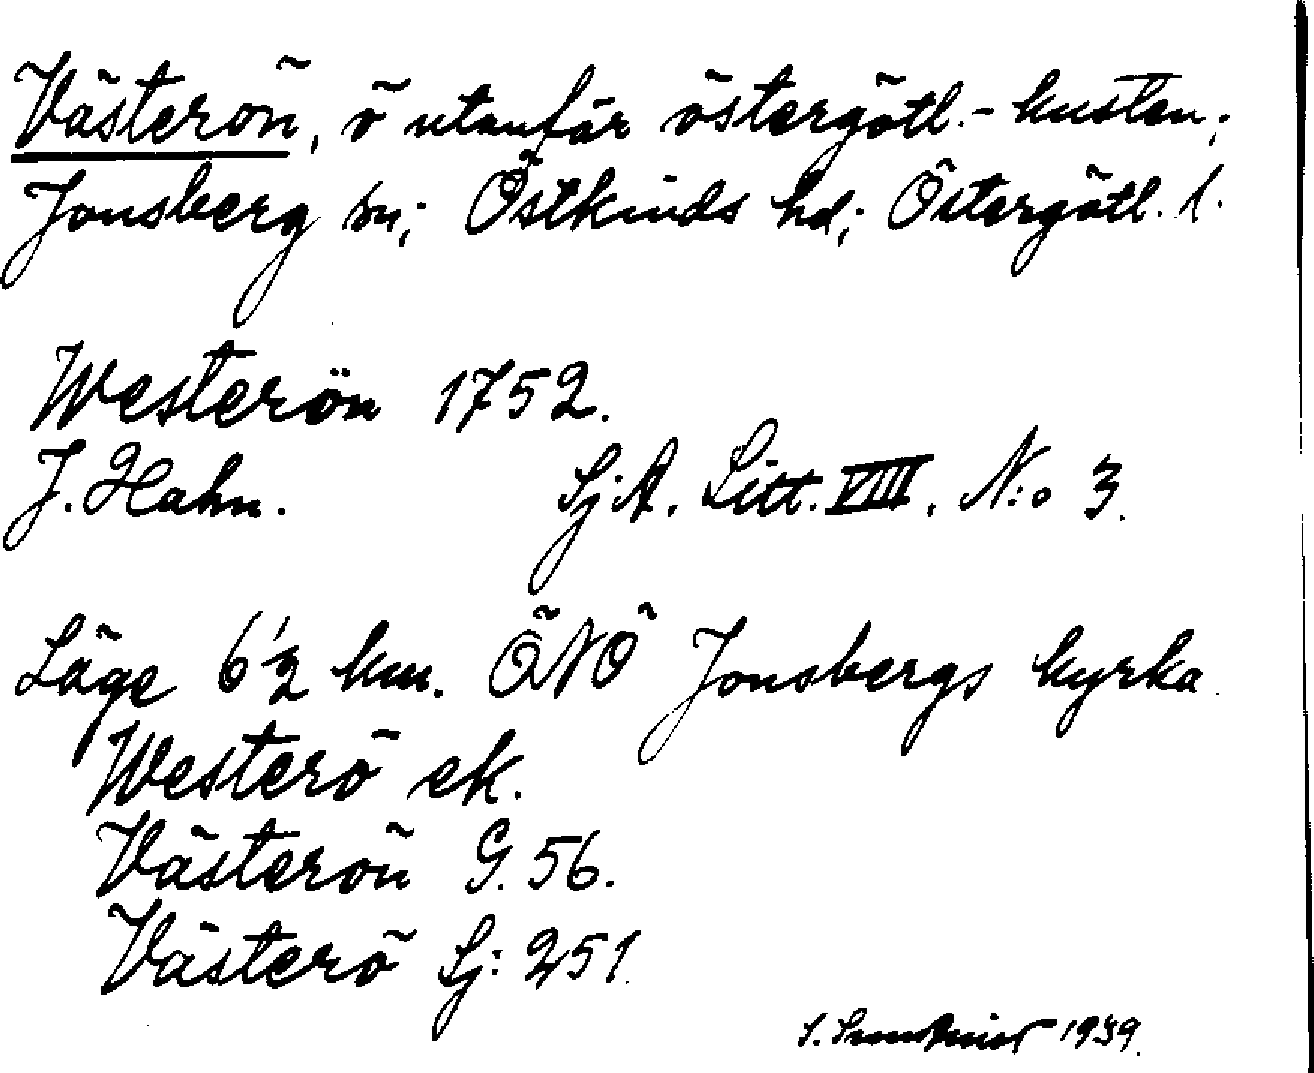 Västerön, ö utanför östergötl.-kusten;
Jonsberg sn; Östkinds hd; Östergötl. l.
Westerön 1752.
J. Hahn. Sj.A. Litt. VIII. N:o 3.
Läge 6 1/2 km. ÖNÖ Jonsbergs kyrka.
Westerö ek.
Västerön G. 56.
Västerö Sj: 251.
S. 1939.